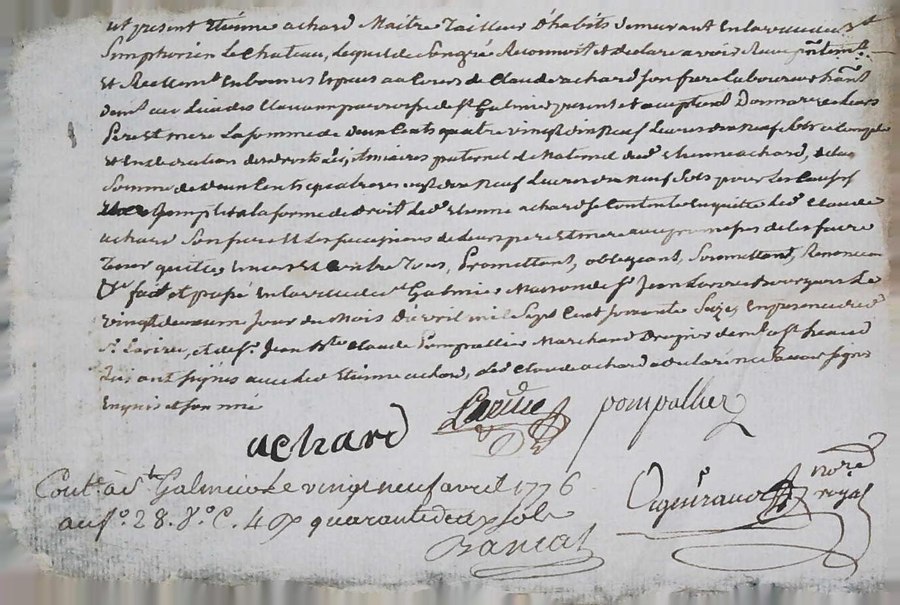 et present Etienne achard Maitre Tailleur D'habits demeurant En la ville de St
Simphorien le Chateau, Lequel de Son gré Reconnoit et declare avoir Reçu
et Reellemt. En bonnes Especes au Cours de Claude achard Son frere Laboureur
demt. au Lieu des parroisse de St. Galmier present et acceptant Donnaire de Leurs
Pere et mere La somme de deux Cents quatre vingt dix Neuf Livres dix neuf sols
paternel et Maternel dud. Etienne achard, de laq
Somme de deux Cents quatre vingt dix Neuf Livres dix neuf Sols pour les Causes
Compté a la forme de Droit Led. Etienne achard se Contente En quitte led. Claude
achard Son frere Et Les successions de Leurs pere Et mere avec promesses de les faire
Tenir quitte Envers Et Contre Tous, Promettant, obligeant, Soumettant, Renonçant
fait et passé En la ville de St. Galmier Maison de Sr. Jean Bourgeois Le
vingt deuxieme Jour du Mois D'avril mil Sept Cent soixante Seize En presence dud.
Sr. et de Sr. Jean Bte. Claude Pompallier Marchand Drapier demt. a St. heand
qui ont signés avec led Etienne achard, led Claude achard a declaré ne Savoir signer
Enquis et sommé
achard pompallier
Contlé. à St. Galmier le vingt neuf avril 1776
au fo. 28. Vo. C. 4 quarante deux sols
nore. royal